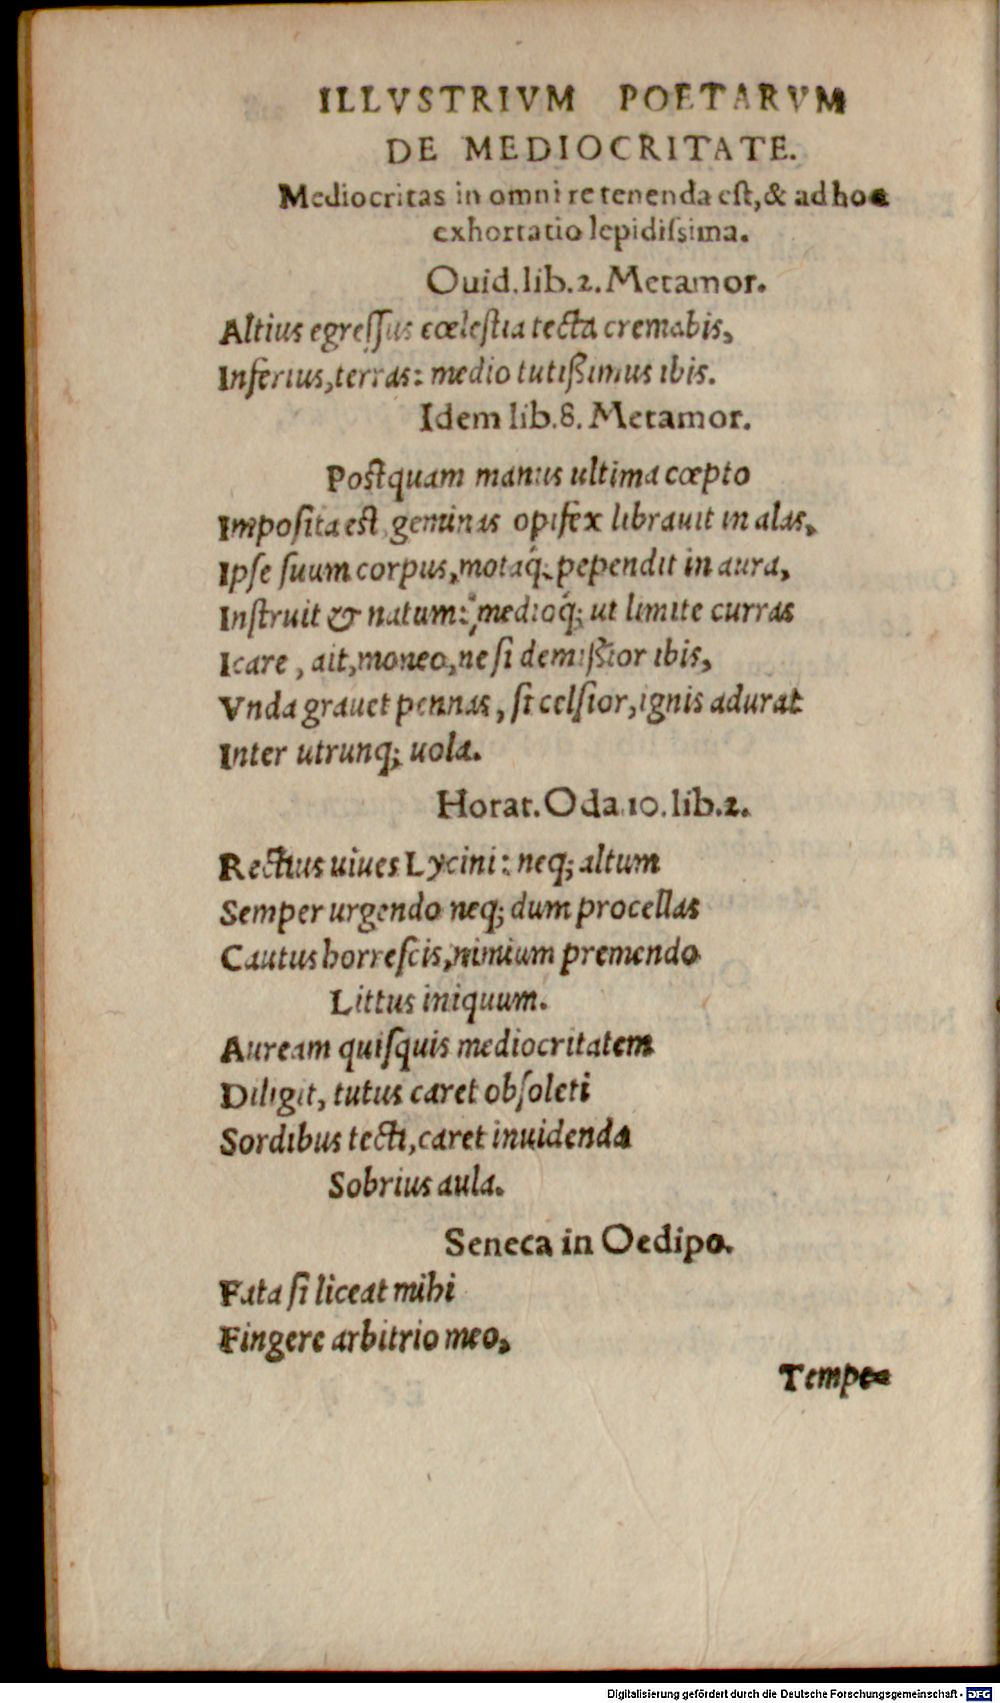 ILLVSTRIVM POETARVM
DE MEDIOCRITATE.
Mediocritas in omni re tenenda est, & ad hoc
exhortatio lepidiſsima.
Ouid. lib. 2. Metamor.
Altius egreſſus cœleſtia tecta cremabis,
Inferius, terras: medio tutißimus ibis.
Idem lib. 8. Metamor.
Postquam manus ultima cœpto
Impoſita est, geminas opifex librauit in alas,
Ipſe ſuum corpus, motaq́; pependit in aura,
Inſtruit & natum: medioq́; ut limite curras
Icare, ait, moneo, ne ſi demißior ibis,
Vnda grauet pennas, ſi celſior, ignis adurat
Inter utrunq; uola.
Horat. Oda 10. lib. 2.
Rectius uiues Lycini: neq; altum
Semper urgendo neq; dum procellas
Cautus horreſcis, nimium premendo
Littus iniquum.
Auream quiſquis mediocritatem
Diligit, tutus caret obſoleti
Sordibus tecti, caret inuidenda
Sobrius aula.
Seneca in Oedipo.
Fata ſi liceat mihi
Fingere arbitrio meo,
Tempe-
Digitalisierung gefördert durch die Deutsche Forschungsgemeinschaft - DFG